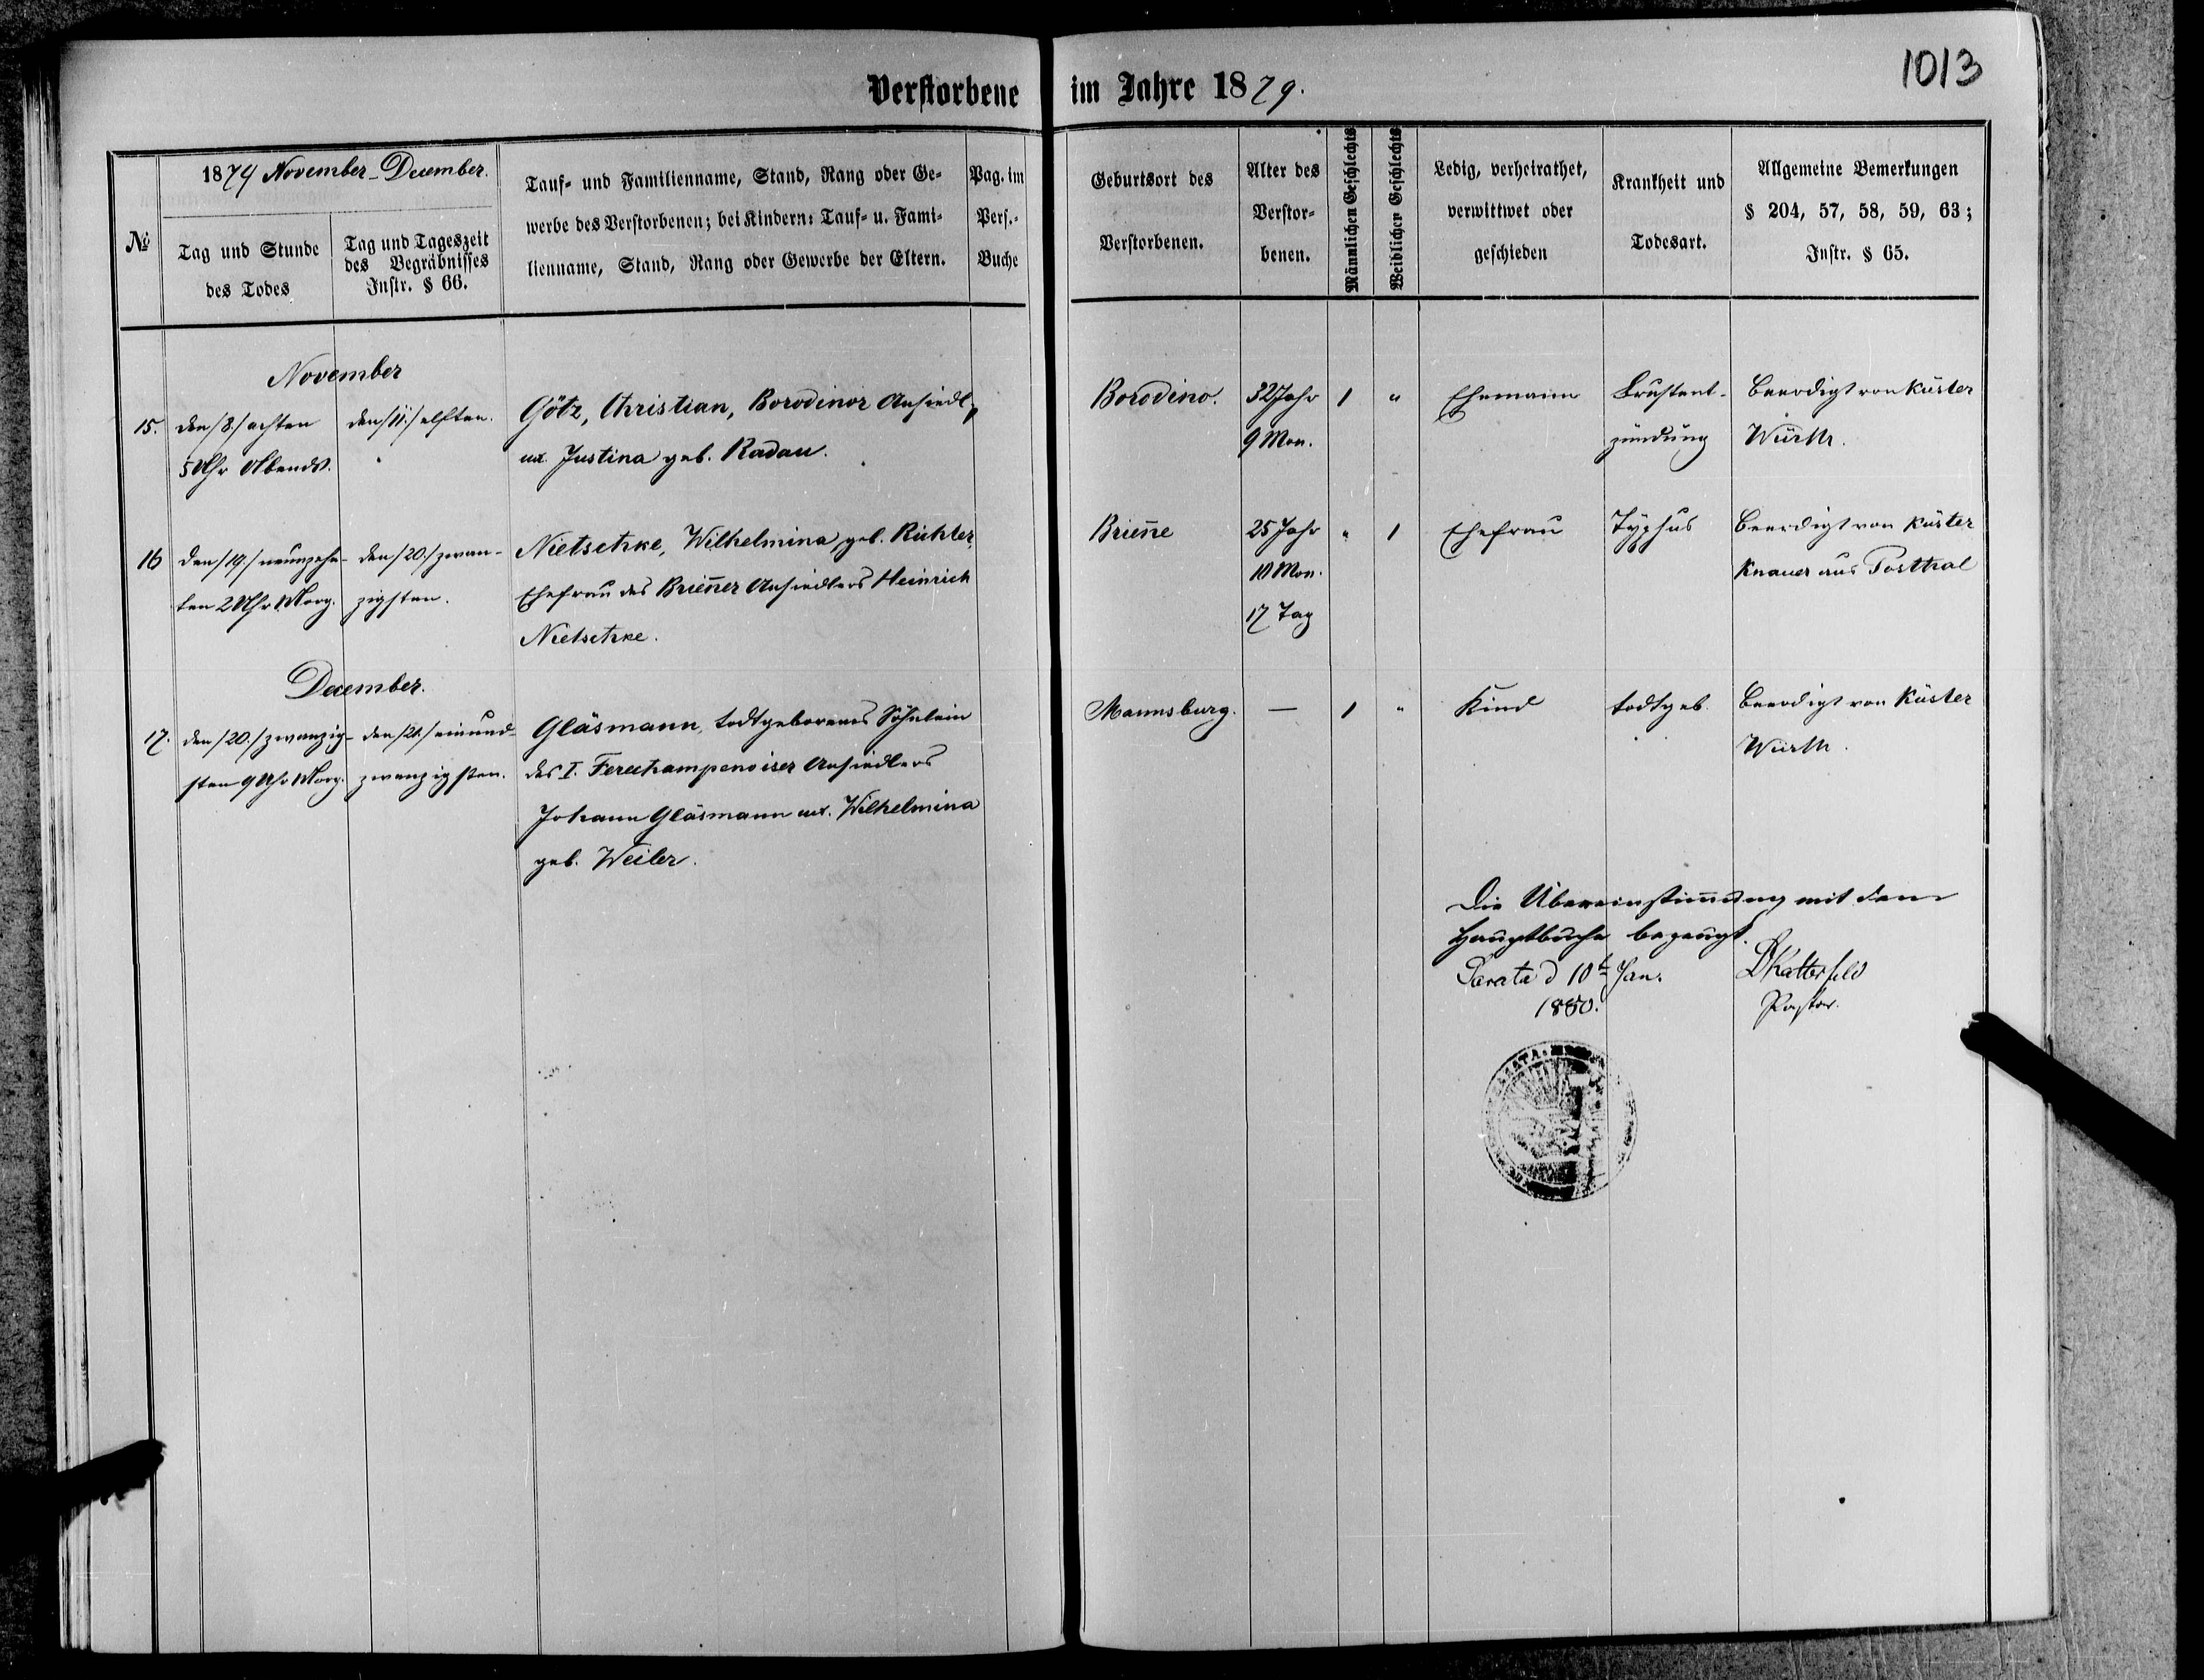 1013
Verstorbene im Jahre 1879.
№
1879 November–December.
Tag und Stunde
des Todes
Tag und Tageszeit
des Begräbnisses
Instr. § 66.
Tauf- und Familienname, Stand, Rang oder Ge-
werbe des Verstorbenen; bei Kindern: Tauf- u. Fami-
lienname, Stand, Rang oder Gewerbe der Eltern.
Pag. im
Pers.-
Buche
Geburtsort des
Verstorbenen.
Alter des
Verstor-
benen.
Männlichen Geschlechts
Weiblichen Geschlechts
Ledig, verheirathet,
verwittwet oder
geschieden
Krankheit und
Todesart.
Allgemeine Bemerkungen
§ 204, 57, 58, 59, 63;
Instr. § 65.
November
15.
den /8./ achten
5 Uhr Abends.
den /11./ elften.
Götz, Christian, Borodinoer Ansiedl.
ux. Justina geb. Radau.
Borodino.
32 Jahr
9 Mon.
1
"
Ehemann
Brustent-
zündung
Beerdigt von Küster
Würth.
16
den /19./ neunzehn-
ten 2 Uhr Morg.
den /20./ zwan-
zigsten.
Nietschke, Wilhelmina, geb. Richter,
Ehefrau des Brien̄er Ansiedlers Heinrich
Nietschke.
Brien̄e
25 Jahr
10 Mon.
17 Tag
"
1
Ehefrau
Typhus
Beerdigt von Küster
Knauer aus Posttal
December.
17.
den /20./ zwanzig-
sten 9 Uhr Morg.
den /21./ einund-
zwanzigsten.
Gläsmann, todtgeborenes Söhnlein
des I. Ferechampenoiser Ansiedlers
Johann Gläsmann ux. Wilhelmina
geb. Weiler.
Mannsburg.
—
1
"
Kind
todtgeb.
Beerdigt von Küster
Würth.
Die Übereinstim̄ung mit dem
Hauptbuche bezeugt.
Sarata d 10t Jan.
1880.
Katterfeld
Pastor.
SARATA